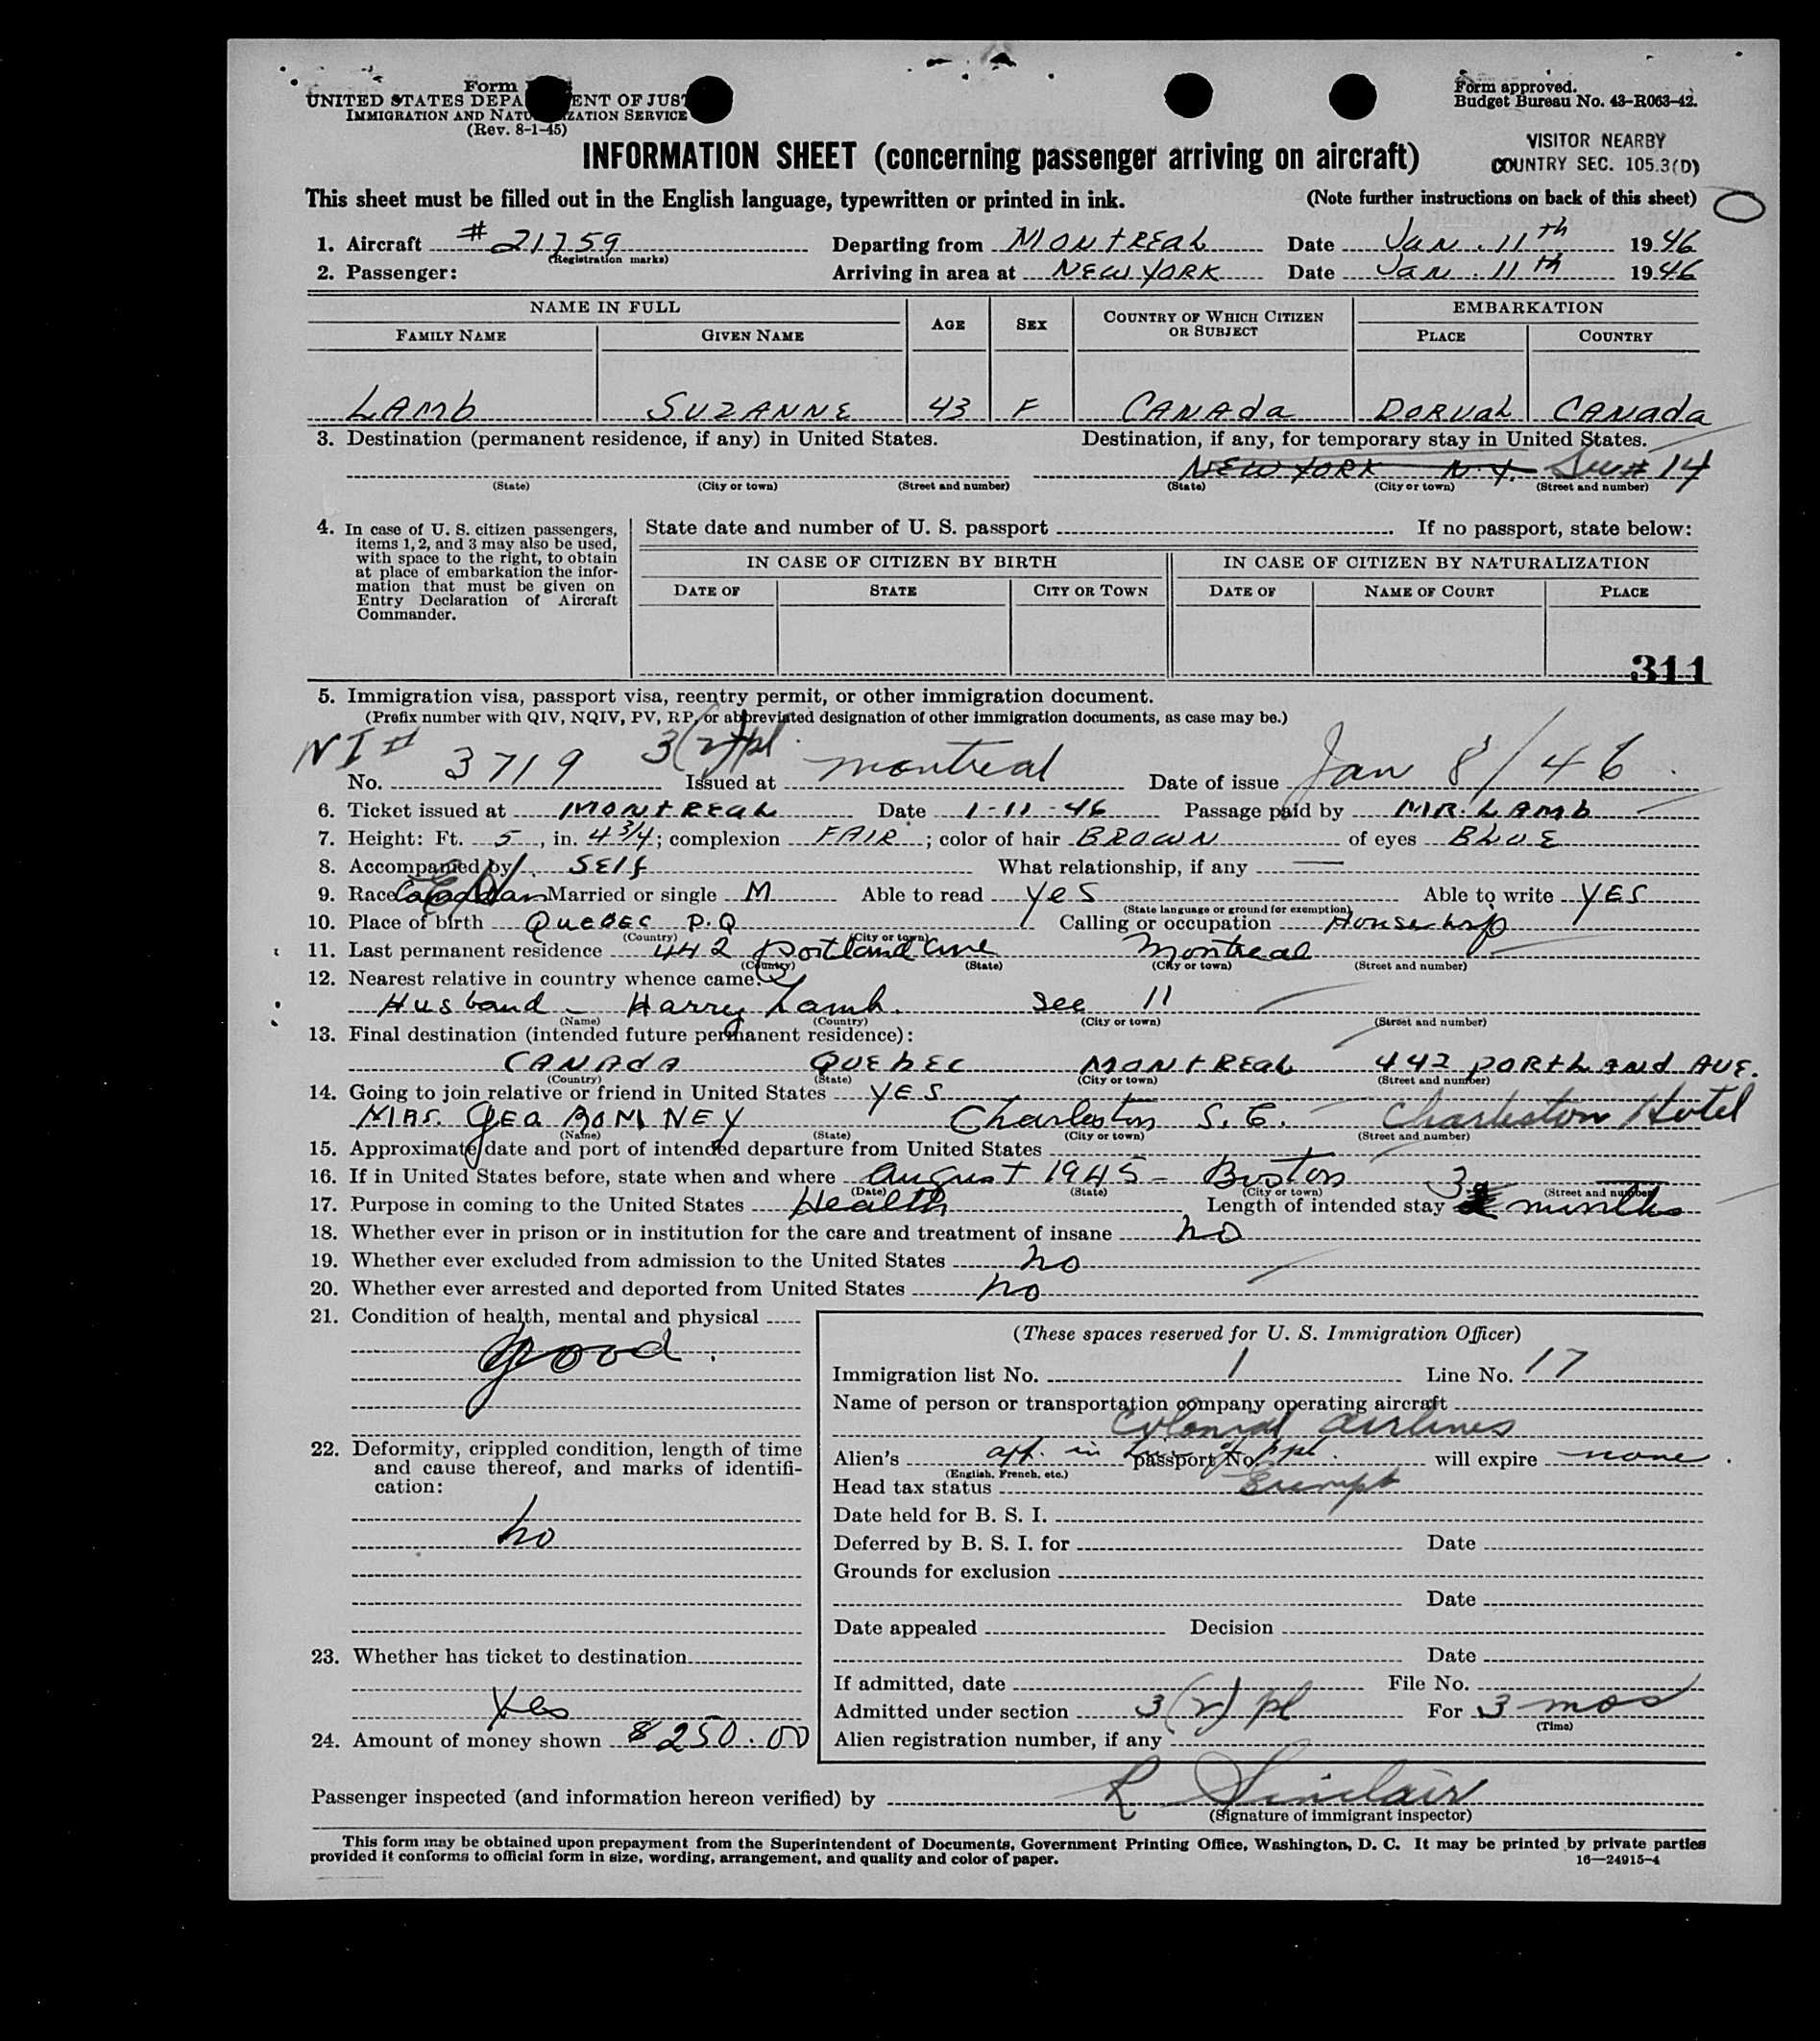 Form
UNITED STATES DEPA ENT OF JUST
IMMIGRATION AND NATU IZATION SERVICE
(Rev. 8-1-45)
Form approved.
Budget Bureau No. 43-R063-42.
VISITOR NEARBY
COUNTRY SEC. 105.3(D)
INFORMATION SHEET (concerning passenger arriving on aircraft)
This sheet must be filled out in the English language, typewritten or printed in ink. (Note further instructions on back of this sheet)
1. Aircraft # 21759 Departing from MONTREAL Date JAN. 11th 1946
(Registration marks)
2. Passenger: Arriving in area at NEW YORK Date JAN. 11th 1946
NAME IN FULL AGE SEX COUNTRY OF WHICH CITIZEN OR SUBJECT EMBARKATION
FAMILY NAME GIVEN NAME PLACE COUNTRY
LAMB SUZANNE 43 F CANADA DORVAL CANADA
3. Destination (permanent residence, if any) in United States. Destination, if any, for temporary stay in United States.
NEW YORK N.Y. See # 14
(State) (City or town) (Street and number) (State) (City or town) (Street and number)
4. In case of U. S. citizen passengers, items 1, 2, and 3 may also be used, with space to the right, to obtain at place of embarkation the information that must be given on Entry Declaration of Aircraft Commander.
State date and number of U. S. passport If no passport, state below:
IN CASE OF CITIZEN BY BIRTH IN CASE OF CITIZEN BY NATURALIZATION
DATE OF STATE CITY OR TOWN DATE OF NAME OF COURT PLACE
311
5. Immigration visa, passport visa, reentry permit, or other immigration document.
(Prefix number with QIV, NQIV, PV, RP, or abbreviated designation of other immigration documents, as case may be.)
NI # 3(2)pl
No. 3719 Issued at Montreal Date of issue Jan 8/46
6. Ticket issued at MONTREAL Date 1-11-46 Passage paid by MR. LAMB
7. Height: Ft. 5, in. 4 3/4; complexion FAIR; color of hair BROWN of eyes BLUE
8. Accompanied by SELF What relationship, if any
9. Race Canadian Married or single M Able to read YES Able to write YES
(State language or ground for exemption)
10. Place of birth QUEBEC P.Q Calling or occupation
(Country) (City or town)
11. Last permanent residence 442 Portland Ave Montreal
(Country) (State) (City or town) (Street and number)
12. Nearest relative in country whence came:
Husband - Harry Lamb. See 11
(Name) (Country) (City or town) (Street and number)
13. Final destination (intended future permanent residence):
CANADA QUEBEC MONTREAL 442 PORTLAND AVE.
(Country) (State) (City or town) (Street and number)
14. Going to join relative or friend in United States YES
MRS. GEO Charleston S.C. Charleston Hotel
(Name) (State) (City or town) (Street and number)
15. Approximate date and port of intended departure from United States
16. If in United States before, state when and where August 1945 - Boston
(Date) (State) (City or town) (Street and number)
17. Purpose in coming to the United States Health Length of intended stay 3 months
18. Whether ever in prison or in institution for the care and treatment of insane no
19. Whether ever excluded from admission to the United States no
20. Whether ever arrested and deported from United States no
21. Condition of health, mental and physical
good.
22. Deformity, crippled condition, length of time and cause thereof, and marks of identification:
no
23. Whether has ticket to destination
Yes
24. Amount of money shown $250.00
(These spaces reserved for U. S. Immigration Officer)
Immigration list No. 1 Line No. 17
Name of person or transportation company operating aircraft
Colonial Airlines
Alien's aff. in lieu of ppt. passport No. will expire none.
(English, French, etc.)
Head tax status Exempt
Date held for B. S. I.
Deferred by B. S. I. for Date
Grounds for exclusion
Date
Date appealed Decision
Date
If admitted, date File No.
Admitted under section 3(2) pl For 3 mos
(Time)
Alien registration number, if any
Passenger inspected (and information hereon verified) by R Sinclair
(Signature of immigrant inspector)
This form may be obtained upon prepayment from the Superintendent of Documents, Government Printing Office, Washington, D. C. It may be printed by private parties
provided it conforms to official form in size, wording, arrangement, and quality and color of paper. 16—24915-4